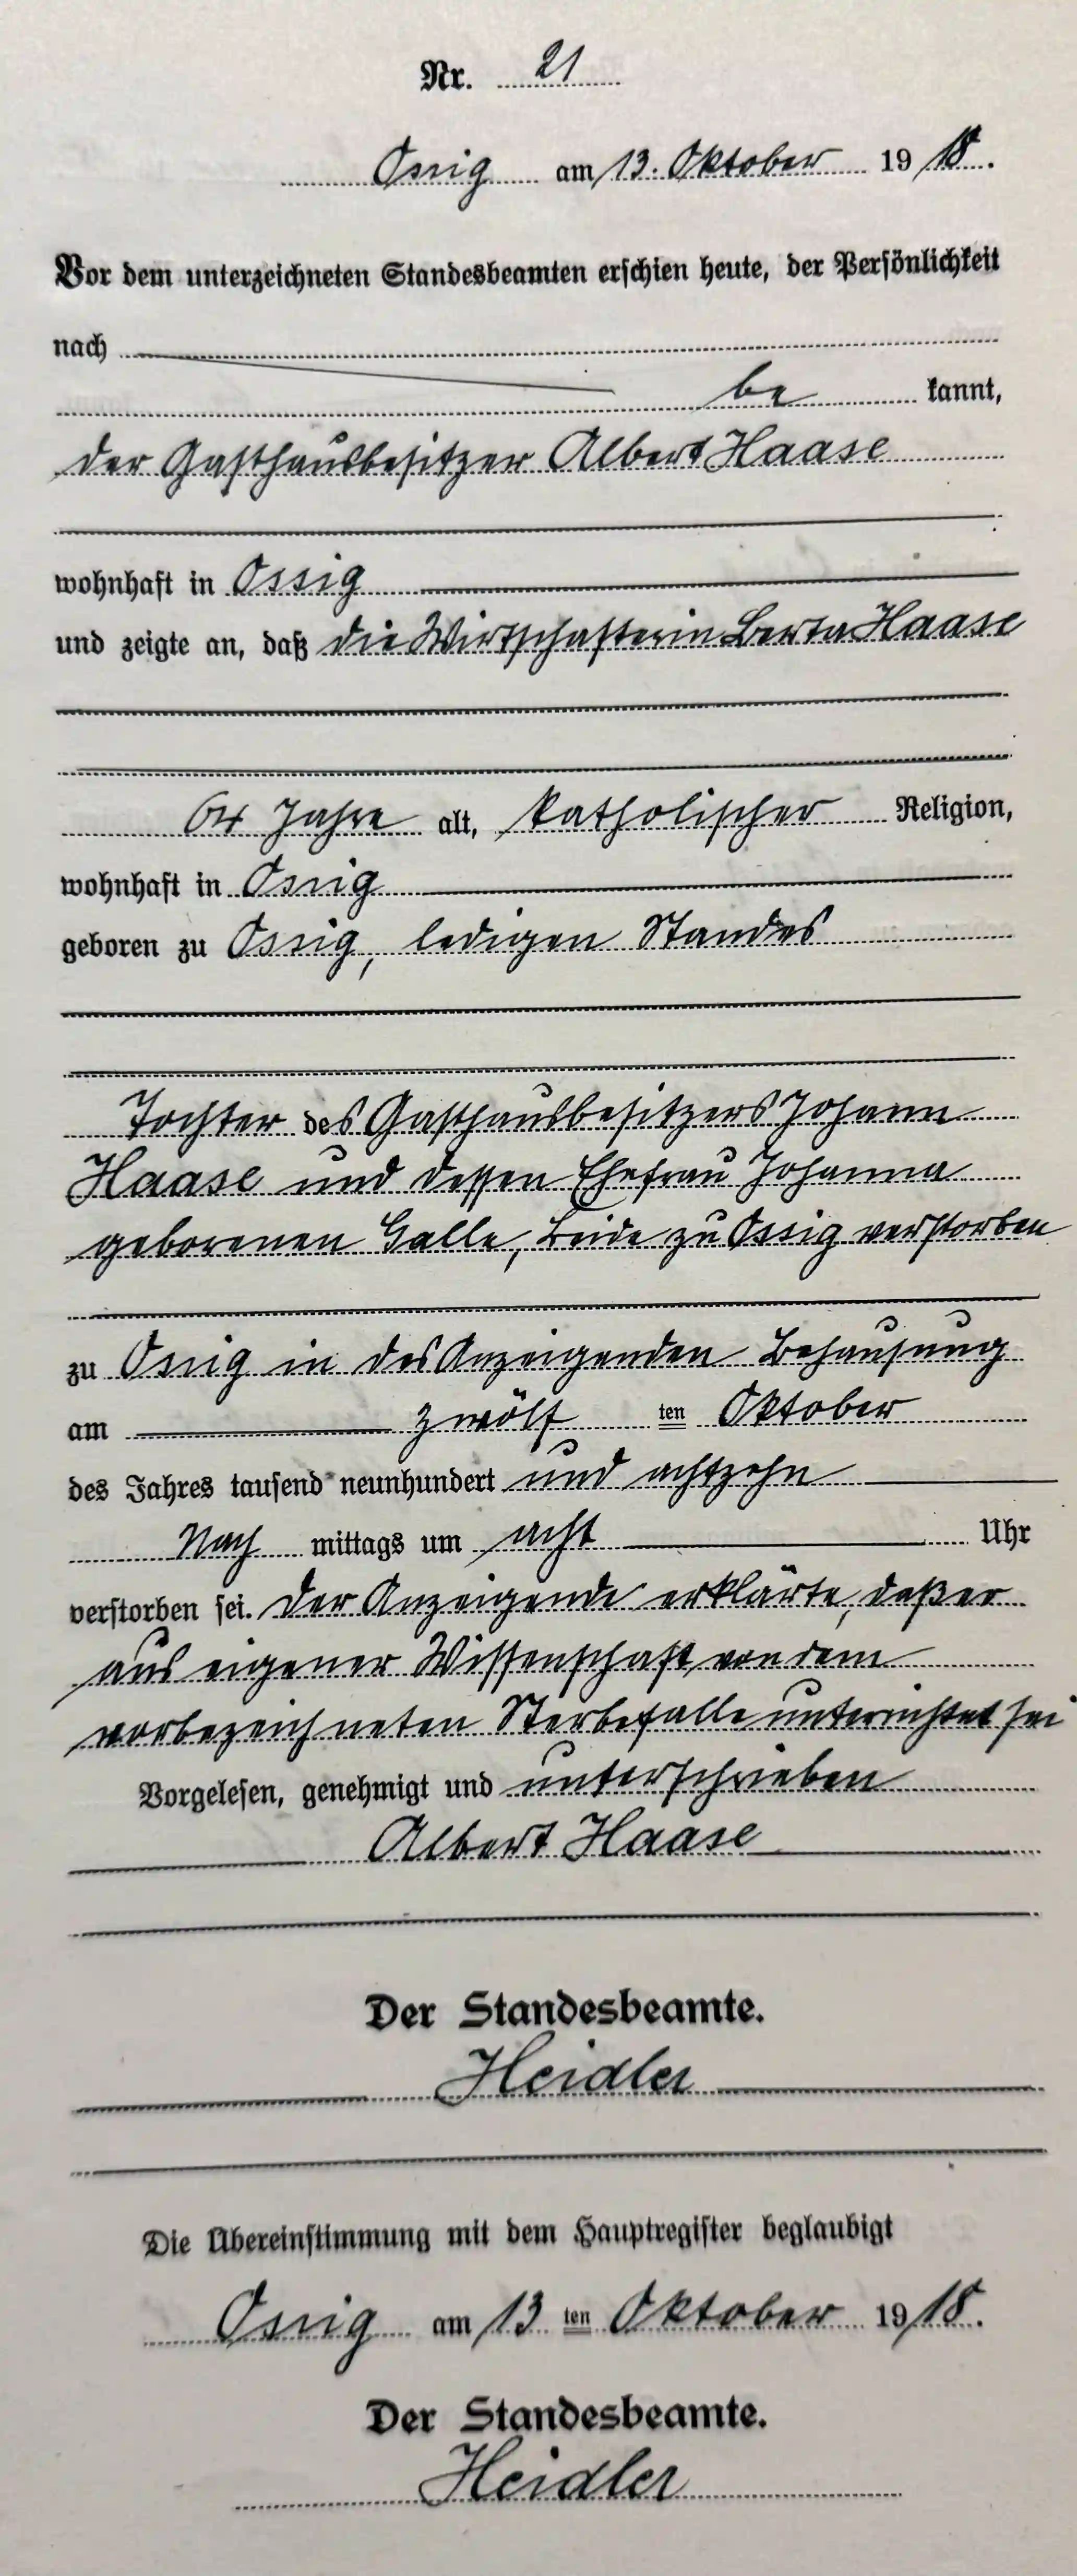 Nr. 21
Ossig am 13. Oktober 1918.
Vor dem unterzeichneten Standesbeamten erschien heute, der Persönlichkeit
nach
be kannt,
der Gasthausbesitzer Albert Haase
wohnhaft in Ossig
und zeigte an, daß die Wirtschafterin Berta Haase
64 Jahre alt, katholischer Religion,
wohnhaft in Ossig
geboren zu Ossig, ledigen Standes
Tochter des Gasthausbesitzers Johann
Haase und dessen Ehefrau Johanna
geborenen Galle, beide zu Ossig verstorben
zu Ossig in des Anzeigenden Behausung
am zwölf ten Oktober
des Jahres tausend neunhundert und achtzehn
Nach mittags um acht Uhr
verstorben sei. Der Anzeigende erklärte, daß er
aus eigener Wissenschaft von dem
vorbezeichneten Sterbefalle unterrichtet sei
Vorgelesen, genehmigt und unterschrieben
Albert Haase
Der Standesbeamte.
Heidler
Die Übereinstimmung mit dem Hauptregister beglaubigt
Ossig am 13 ten Oktober 1918.
Der Standesbeamte.
Heidler